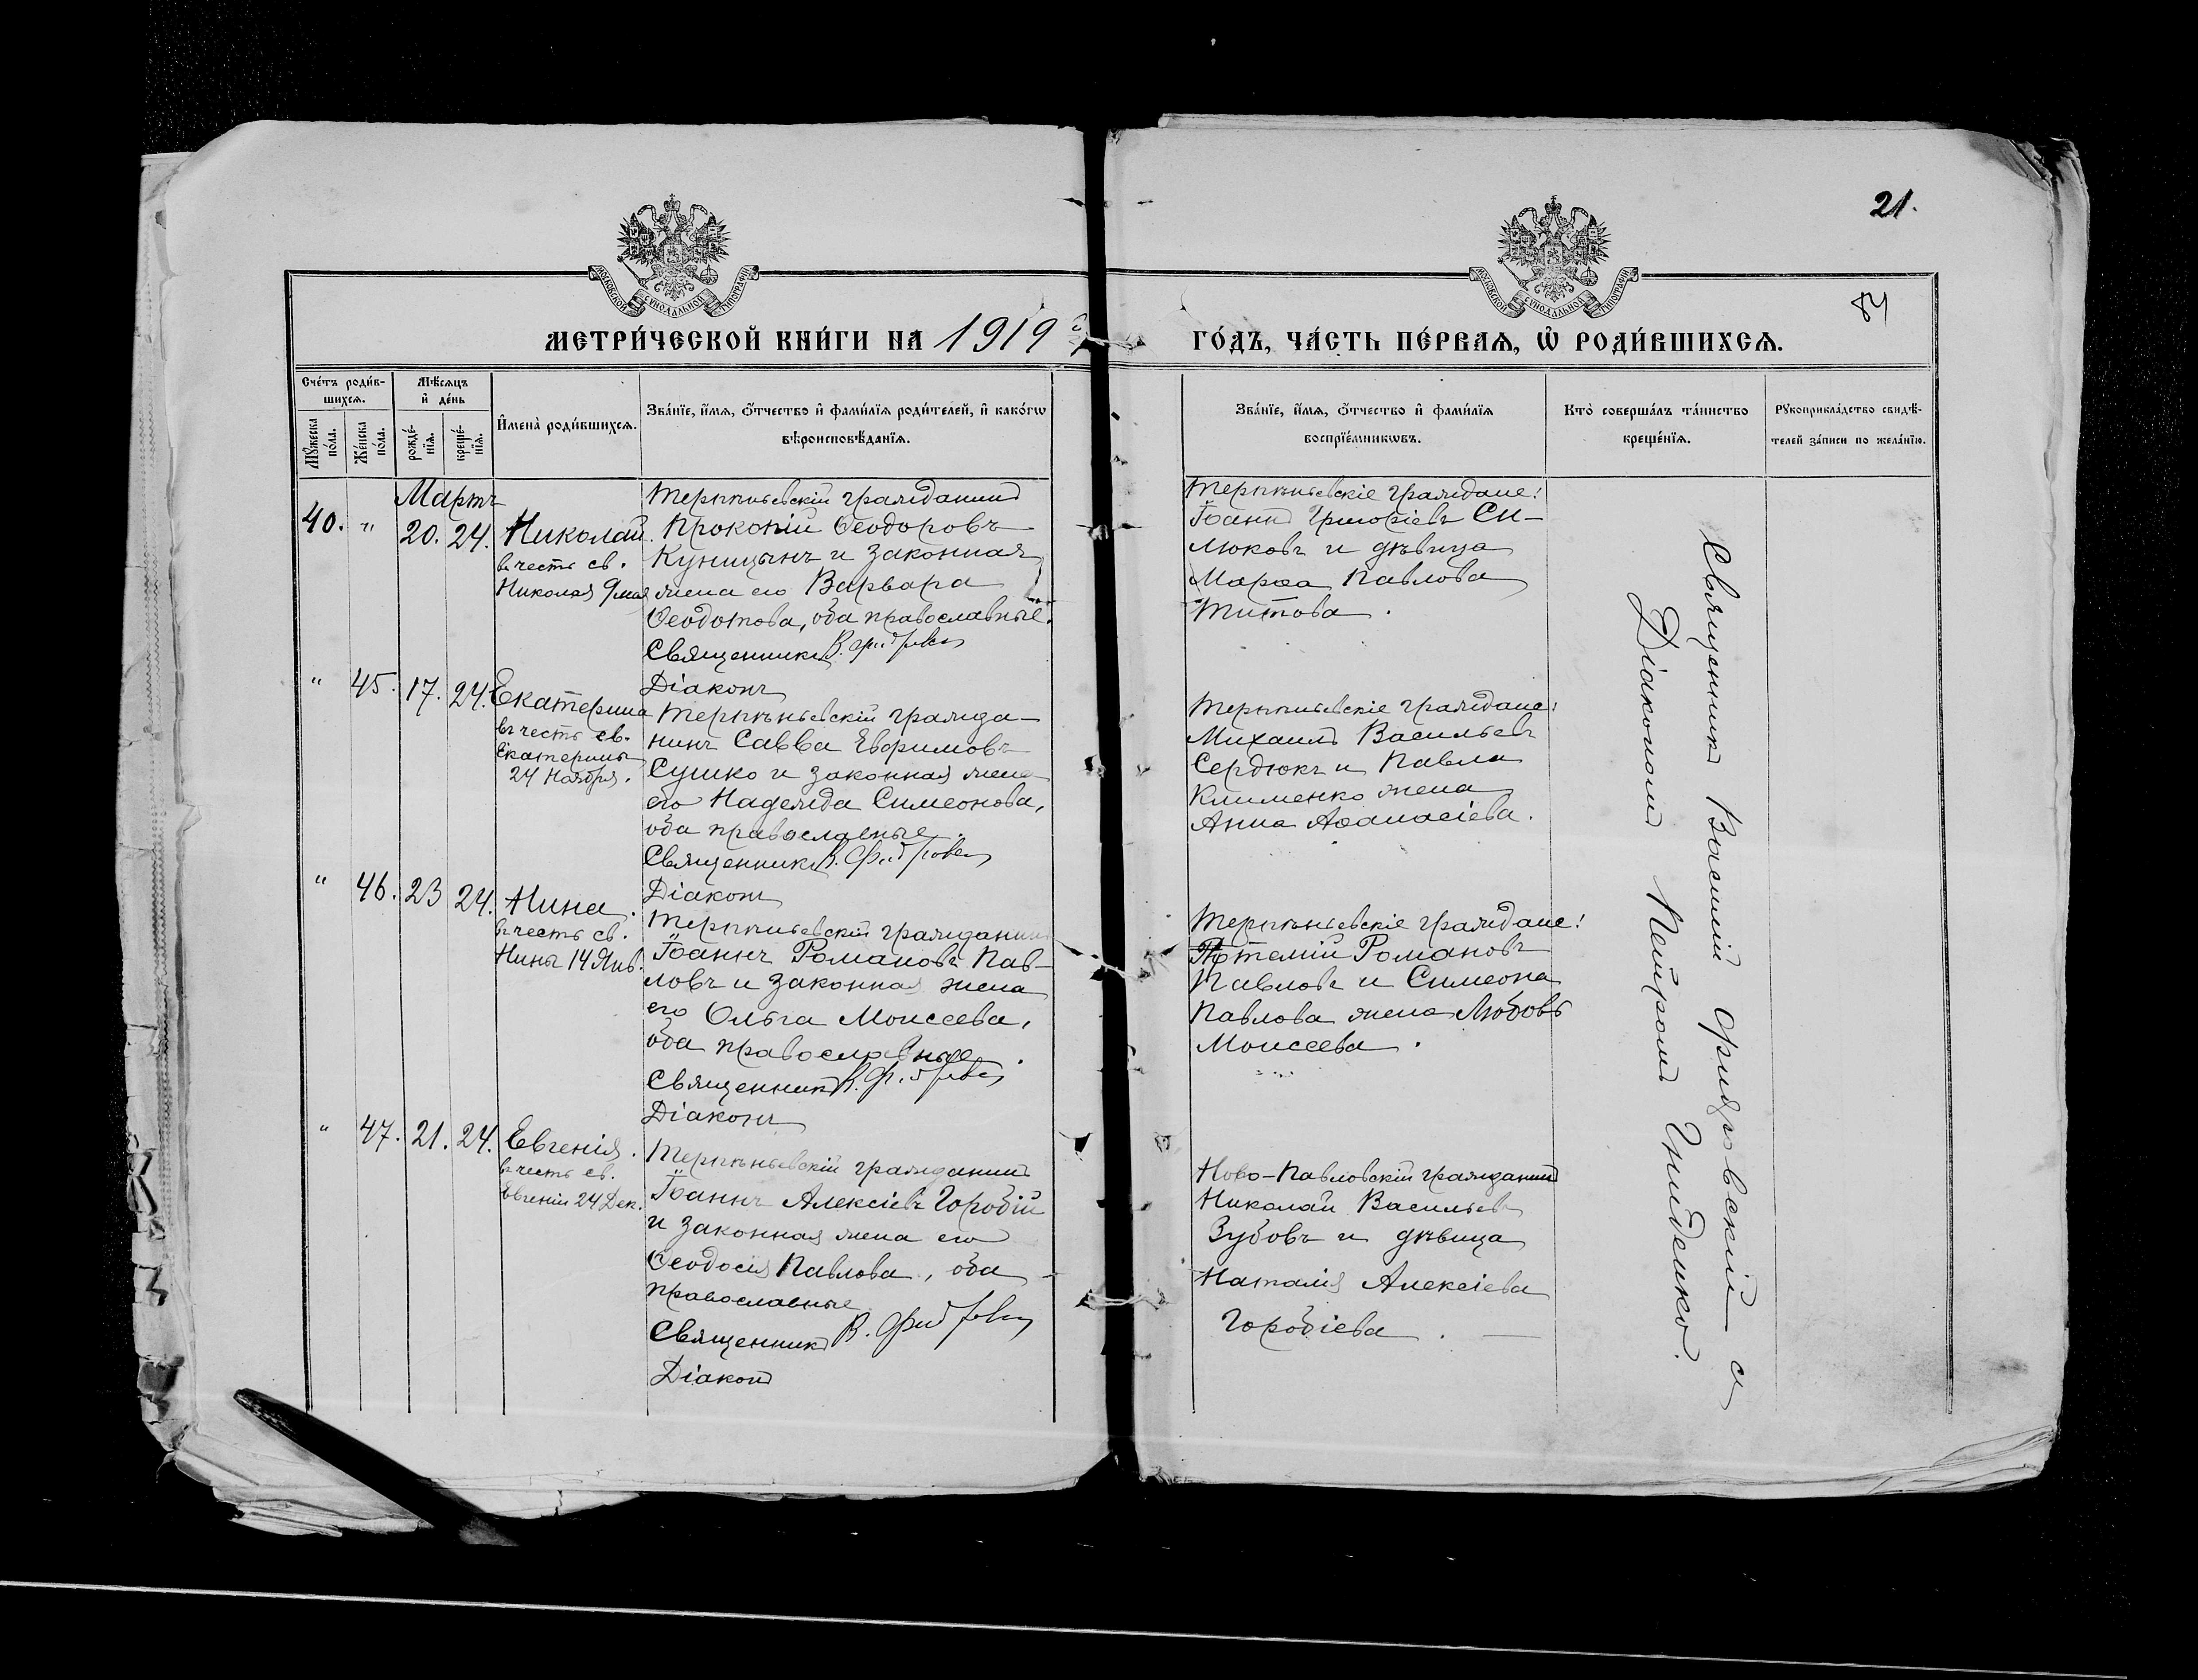 21.
84
МОСКОВСКОЙ СѴНОДАЛЬНОЙ ТѴПОГРАФІИ
МОСКОВСКОЙ СѴНОДАЛЬНОЙ ТѴПОГРАФІИ
МЕТРИ́ЧЕСКОЙ КНИ́ГИ НА 1919 й
ГО́ДЪ, ЧА́СТЬ ПЕ́РВАѦ, Ѡ҆ РОДИ́ВШИХСѦ.
Сче́тъ роди́в-
шихсѧ.
Мꙋ́жеска
по́ла.
Же́нска
по́ла.
Мѣ́сѧцъ
и҆ де́нь
рожде́-
нїѧ.
креще́-
нїѧ.
И҆мена̀ роди́вшихсѧ.
Зва́нїе, и҆́мѧ, ѻ҆́тчество и҆ фами́лїѧ роди́телей, и҆ како́гѡ
вѣроисповѣ́данїѧ.
Зва́нїе, и҆́мѧ, ѻ҆́тчество и҆ фами́лїѧ
воспрїе́мникѡвъ.
Кто̀ соверша́лъ та́инство
креще́нїѧ.
Рꙋкоприкла́дство свидѣ́-
телей за́писи по жела́нїю.
Мартъ
40. " 20. 24. Николай.
въ честь св.
Николая 9 мая
Терпѣньевскій гражданинъ
Прокопій Ѳеодоровъ
Куницынъ и законная
жена его Варвара
Ѳеодотова, оба православные.
Священникъ
Діаконъ
Терпѣньевскіе граждане:
Іоаннъ Григоріевъ Си-
люковъ и дѣвица
Марѳа Павлова
Титова.
" 45. 17. 24. Екатерина
въ честь св.
Екатерины
24 Ноября.
Терпѣньевскій гражда-
нинъ Савва Евфимовъ
Сушко и законная жена
его Надежда Симеонова,
оба православные.
Священникъ
Діаконъ
Терпѣньевскіе граждане:
Михаилъ Васильевъ
Сердюкъ и Павла
Клименко жена
Анна Аѳанасіева.
" 46. 23 24. Нина.
въ честь св.
Нины 14 Янв.
Терпѣньевскій гражданинъ
Іоаннъ Романовъ Пав-
ловъ и законная жена
его Ольга Моисеева,
оба православные.
Священникъ
Діаконъ
Терпѣньевскіе граждане:
Романовъ
Павловъ и Симеона
Павлова жена Любовь
Моисеева.
" 47. 21. 24. Евгенія.
въ честь св.
Евгеніи 24 Дек.
Терпѣньевскій гражданинъ
Іоаннъ Алексіевъ Горобій
и законная жена его
Ѳеодосія Павлова, оба
православные
Священникъ
Діаконъ
Ново-Павловскій гражданинъ
Николай Васильевъ
Зубовъ и дѣвица
Наталія Алексіева
Горобіева.
Священник Василій Фридровскій съ
Діакономъ Петромъ Гриденко.